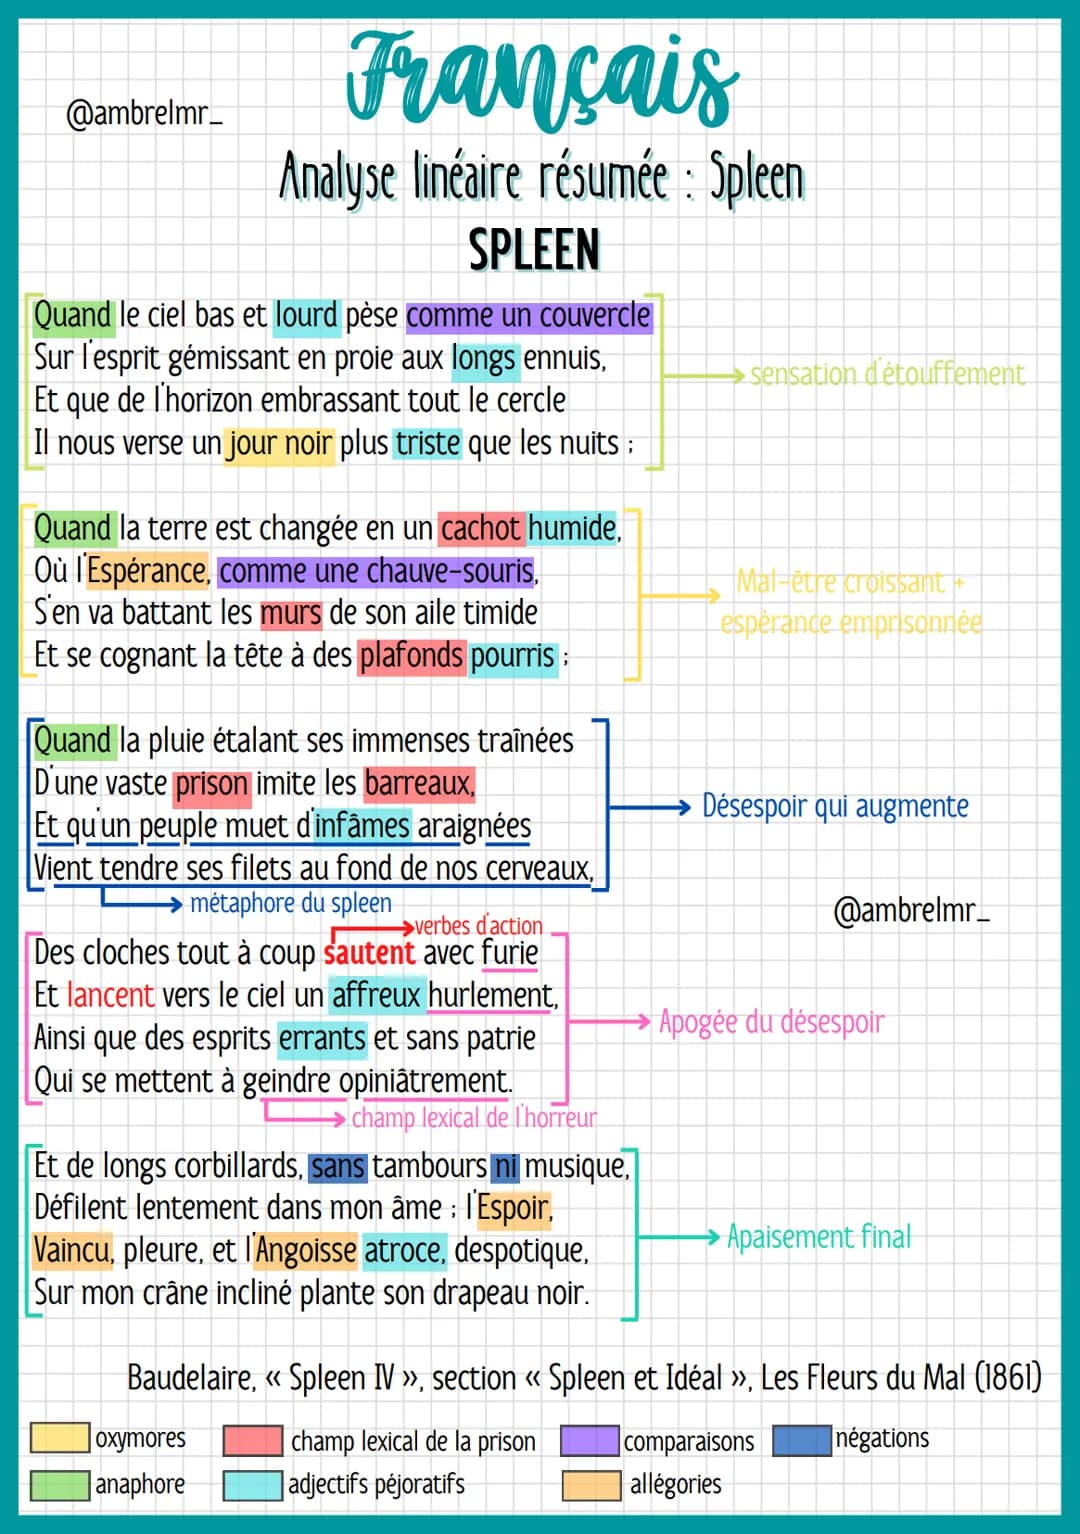 Français
@ambrelmr_
Analyse linéaire résumée : Spleen
SPLEEN
Quand le ciel bas et lourd pèse comme un couvercle
Sur l'esprit gémissant en proie aux longs ennuis,
Et que de l'horizon embrassant tout le cercle
Il nous verse un jour noir plus triste que les nuits ;
sensation d'étouffement
Quand la terre est changée en un cachot humide,
Où l'Espérance, comme une chauve-souris,
S'en va battant les murs de son aile timide
Et se cognant la tête à des plafonds pourris ;
Mal-être croissant +
espérance emprisonnée
Quand la pluie étalant ses immenses traînées
D'une vaste prison imite les barreaux,
Et qu'un peuple muet d'infâmes araignées
Vient tendre ses filets au fond de nos cerveaux,
Désespoir qui augmente
métaphore du spleen
@ambrelmr_
verbes d'action
Des cloches tout à coup sautent avec furie
Et lancent vers le ciel un affreux hurlement,
Ainsi que des esprits errants et sans patrie
Qui se mettent à geindre opiniâtrement.
Apogée du désespoir
champ lexical de l'horreur
Et de longs corbillards, sans tambours ni musique,
Défilent lentement dans mon âme ; l'Espoir,
Vaincu, pleure, et l'Angoisse atroce, despotique,
Sur mon crâne incliné plante son drapeau noir.
Apaisement final
Baudelaire, « Spleen IV », section « Spleen et Idéal », Les Fleurs du Mal (1861)
oxymores champ lexical de la prison comparaisons négations
anaphore adjectifs péjoratifs allégories